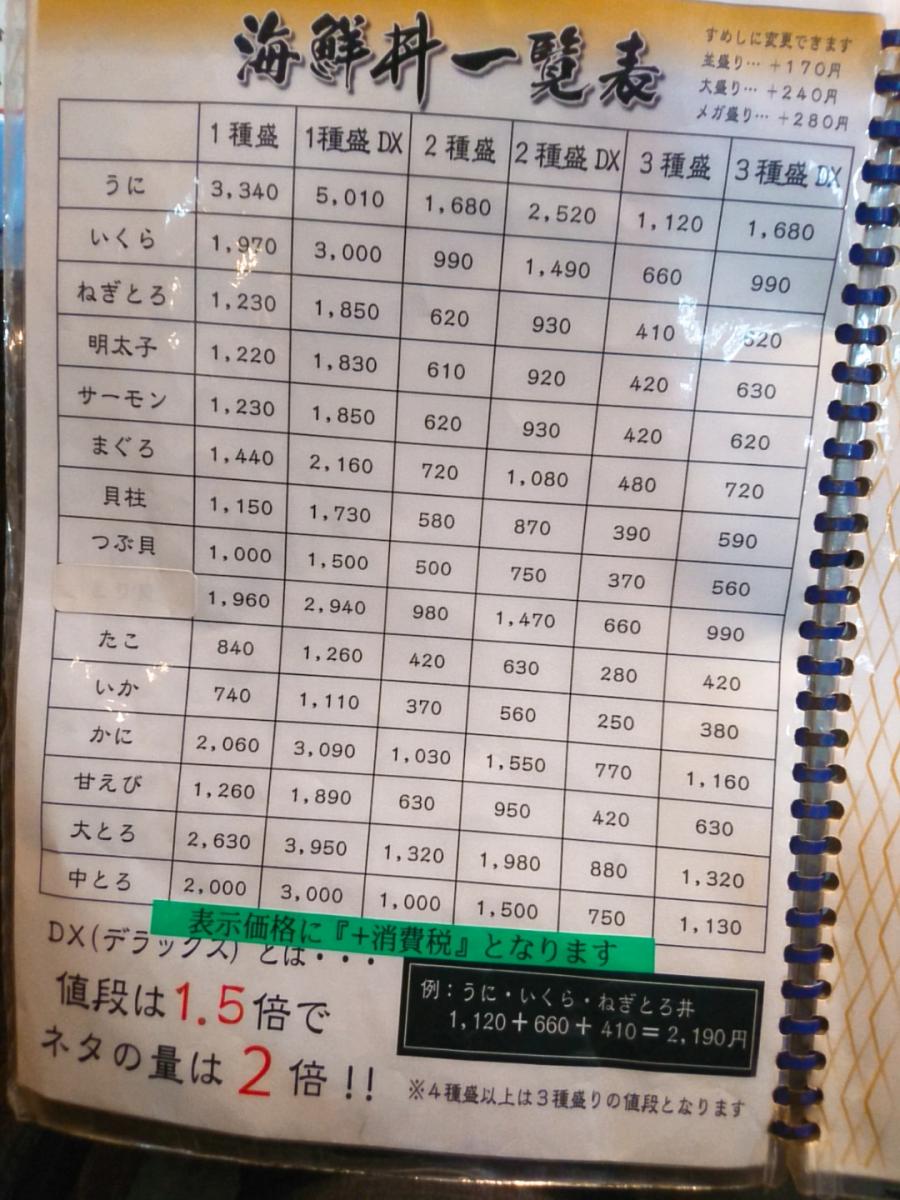 海鮮丼一覧表
すめしに変更できます
並盛り… +170円
大盛り… +240円
メガ盛り… +280円
1種盛 1種盛DX 2種盛 2種盛DX 3種盛 3種盛DX
うに 3,340 5,010 1,680 2,520 1,120 1,680
いくら 1,970 3,000 990 1,490 660 990
ねぎとろ 1,230 1,850 620 930 410 620
明太子 1,220 1,830 610 920 420 630
サーモン 1,230 1,850 620 930 420 620
まぐろ 1,440 2,160 720 1,080 480 720
貝柱 1,150 1,730 580 870 390 590
つぶ貝 1,000 1,500 500 750 370 560
1,960 2,940 980 1,470 660 990
たこ 840 1,260 420 630 280 420
いか 740 1,110 370 560 250 380
かに 2,060 3,090 1,030 1,550 770 1,160
甘えび 1,260 1,890 630 950 420 630
大とろ 2,630 3,950 1,320 1,980 880 1,320
中とろ 2,000 3,000 1,000 1,500 750 1,130
表示価格に『+消費税』となります
DX(デラックス)とは・・・
値段は1.5倍で
ネタの量は2倍!!
例:うに・いくら・ねぎとろ丼
1,120+660+410=2,190円
※4種盛以上は3種盛りの値段となります